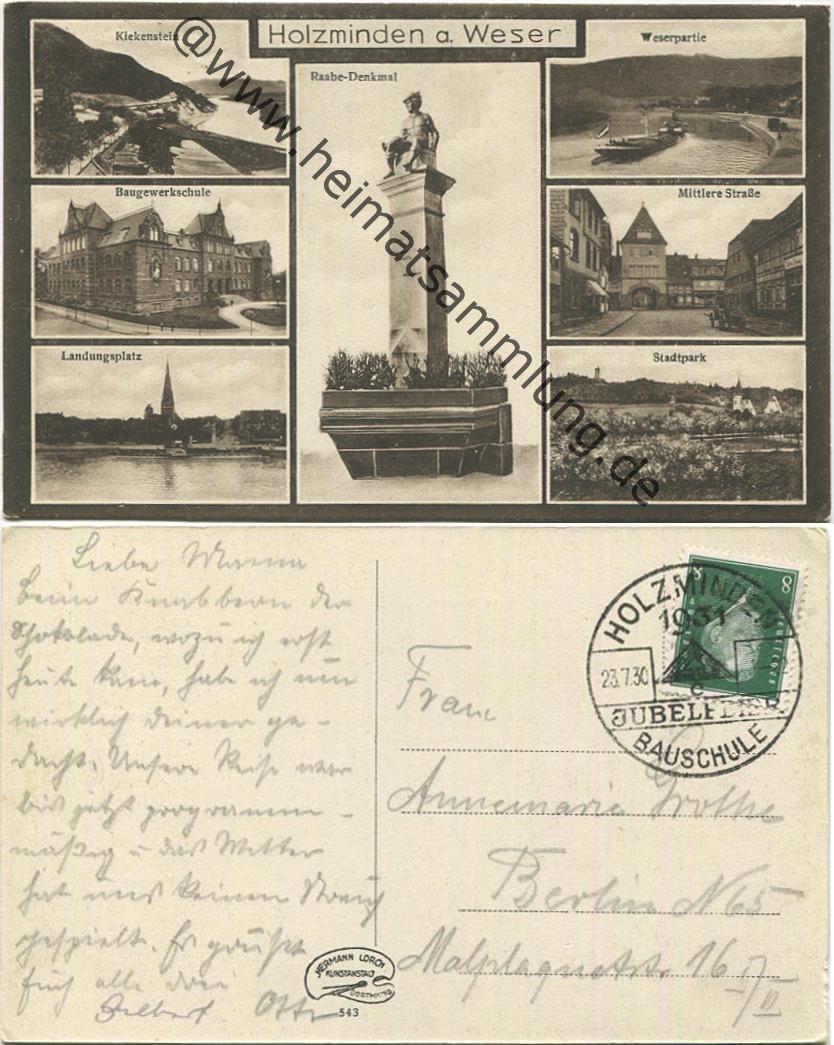 Holzminden a. Weser
Kiekenstein
Raabe-Denkmal
Weserpartie
Baugewerkschule
Mittlere Straße
Landungsplatz
Stadtpark
@www.heimatsammlung.de
Liebe Mama
beim Knabbern der
Schokolade, wozu ich erst
heute kam, habe ich nun
wirklich deiner ge-
dacht. Unsere Reise war
bis jetzt programm-
mäßig u das Wetter
hat uns keinen Streich
gespielt. Es grüßt
Euch alle drei
Otto
HOLZMINDEN
1931
23.7.30
JUBELFEIER
BAUSCHULE
8 8
Frau
Annemarie Grothe
Berlin N 65
Malplaquetstr. 16 II
HERMANN LORCH
KUNSTANSTALT
DORTMUND
543